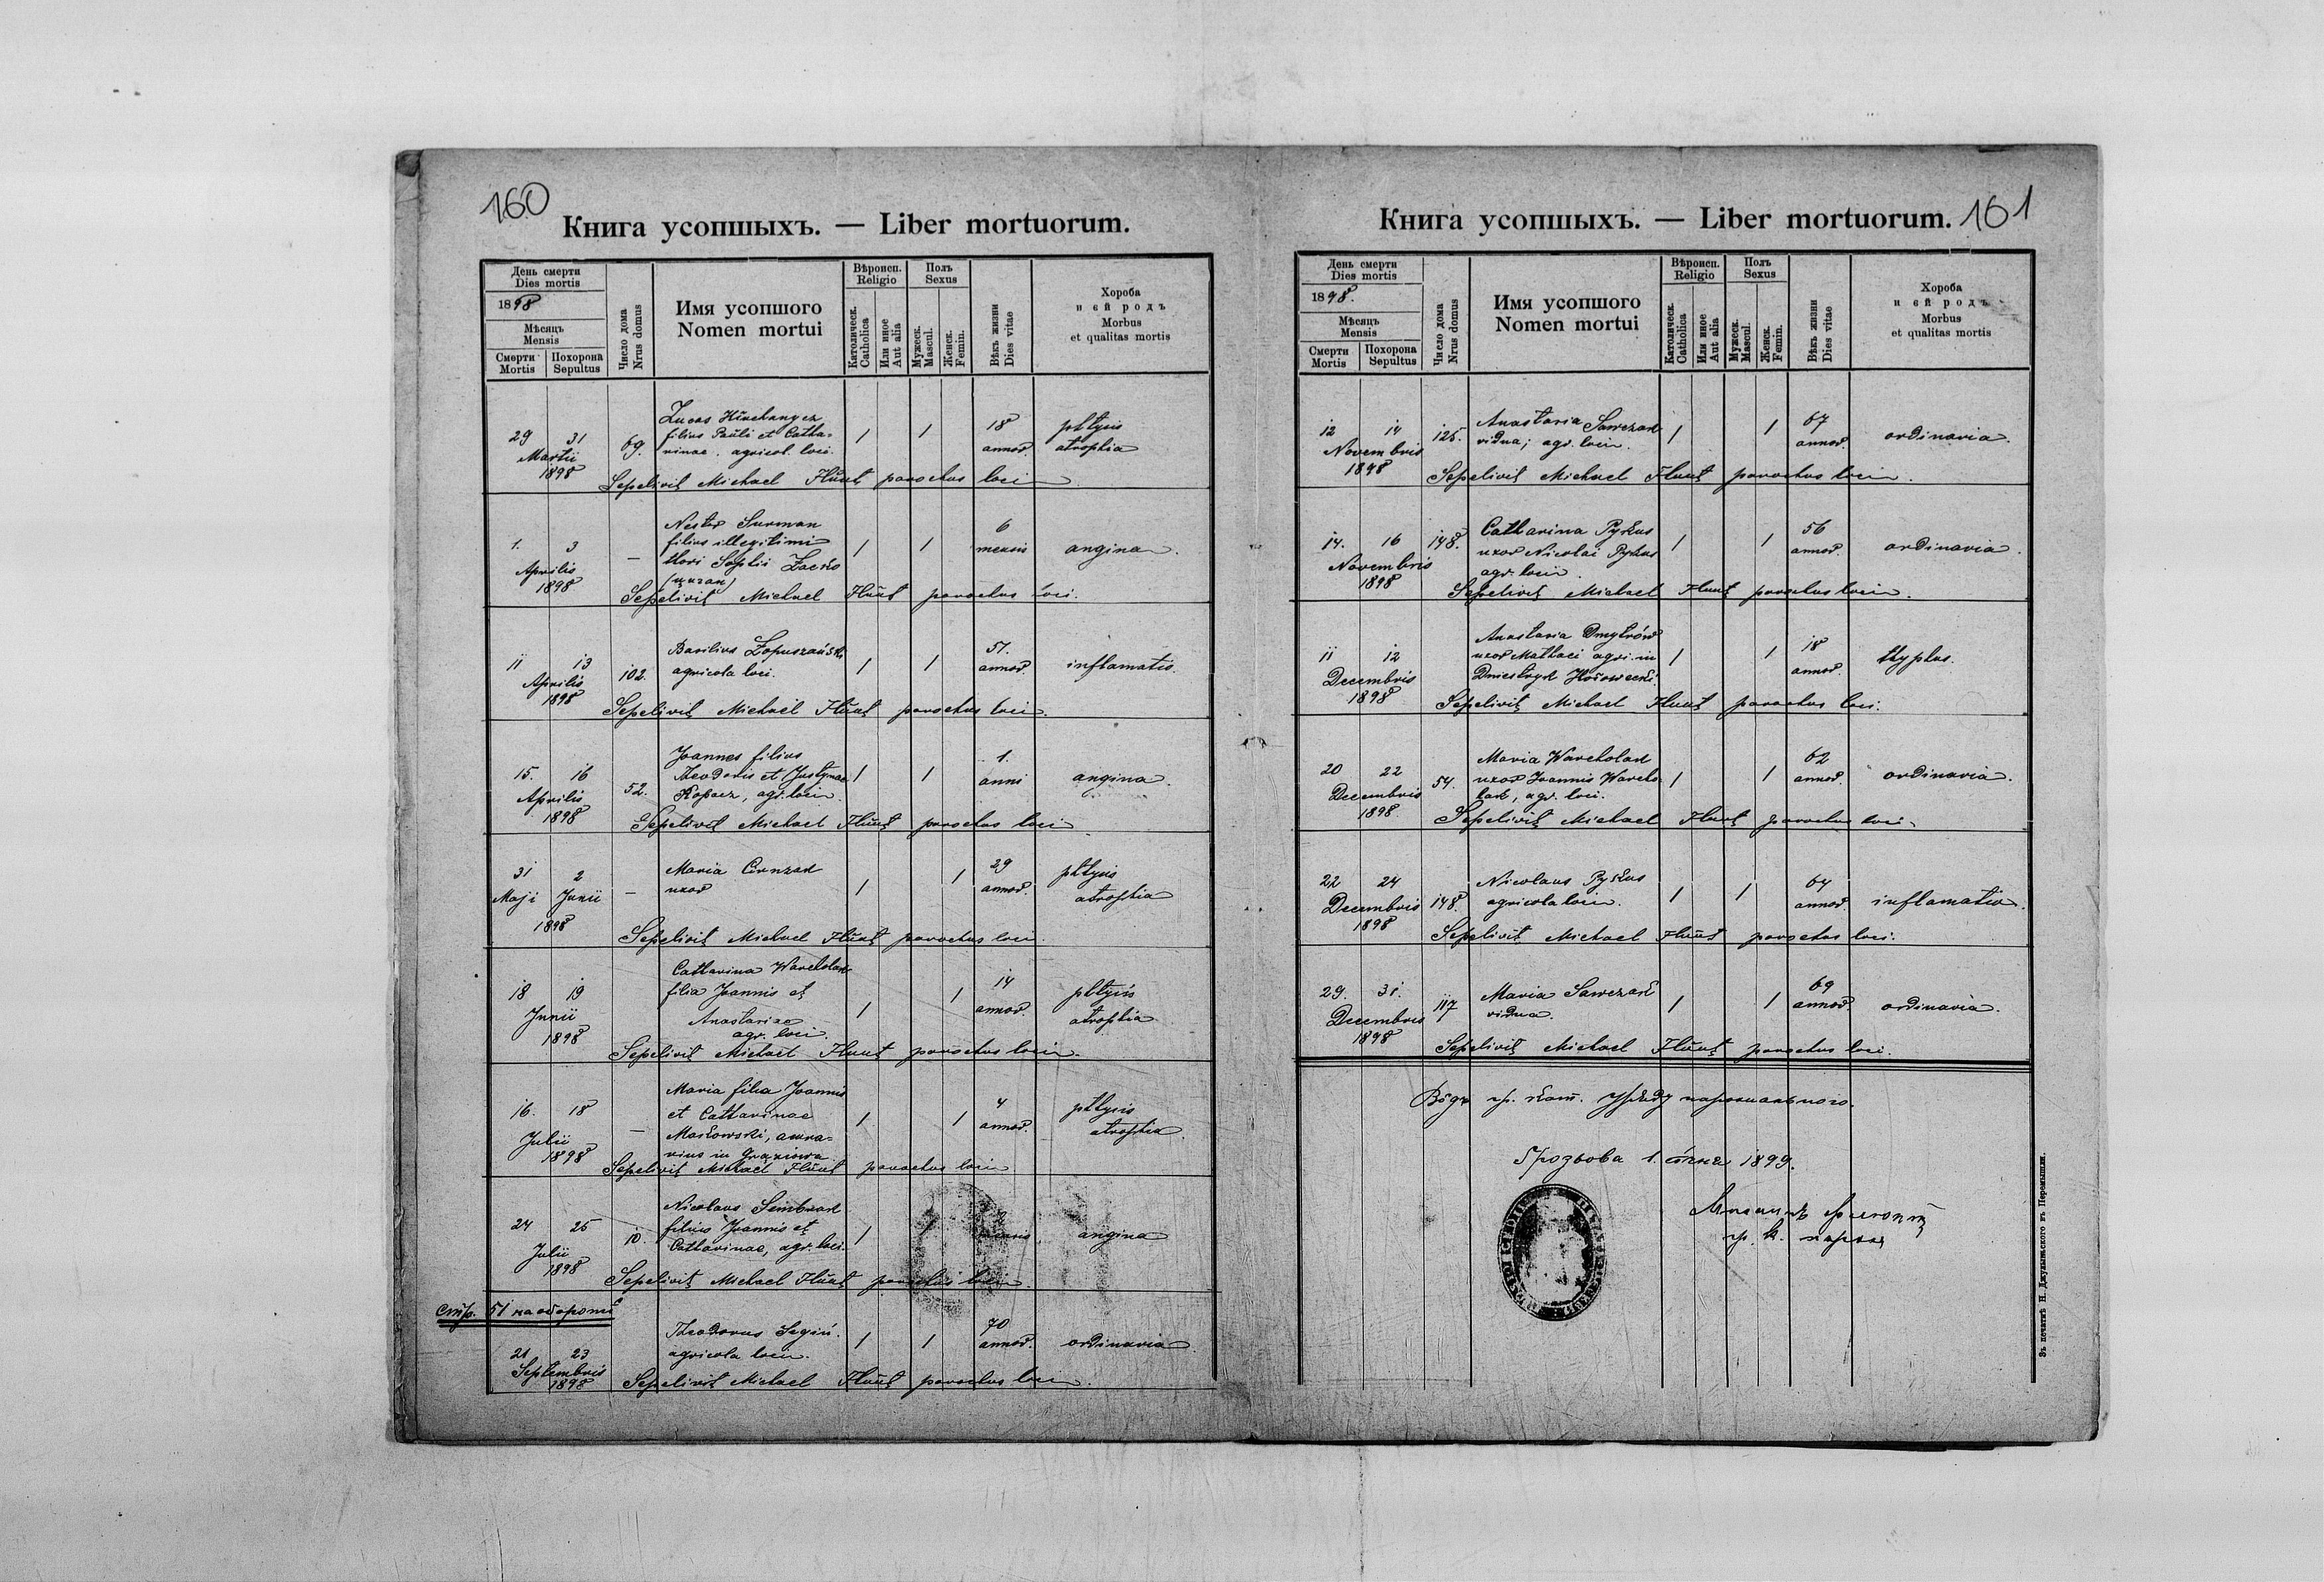 160
Книга усопшыхъ. — Liber mortuorum.
День смерти
Dies mortis
1898
Мѣсяць
Mensis
Смерти
Mortis
Похорона
Sepultus
Число дома
Nrus domus
Имя усопшого
Nomen mortui
Вѣроисп.
Religio
Католическ.
Catholica
Или иное
Aut alia
Полъ
Sexus
Мужеск.
Mascul.
Женск.
Femin.
Вѣкъ жизни
Dies vitae
Хороба
и єй родъ
Morbus
et qualitas mortis
29 31 Martii 1898
69.
Lucas
filius Pauli et Catha-
rinae. agricol. loci.
1 1 18 annor.
phtysis
atrophia
Sepelivit Michael Flunt parochus loci
1. 3 Aprilis 1898
—
Nestor Surman
filius illegitimi
thori Sophii
1 1 6 mensis
angina.
Sepelivit Michael Flunt parochus loci.
11 13 Aprilis 1898
102.
Basilius Łopuszański
agricola loci.
1 1 57. annor.
inflamatio.
Sepelivit Michael Flunt parochus loci.
15. 16 Aprilis 1898
52.
Joannes filius
Theodoris et Justynae
Kopacz, agr. loci.
1 1 1. anni
angina.
Sepelivit Michael Flunt parochus loci
31 Maji 2 Junii 1898
—
Maria
uxor
1 1 29 annor.
phtysis
atrophia
Sepelivit Michael Flunt parochus loci.
18 19 Junii 1898
Catharina Warcholak
filia Joannis et
Anastasiae
agr. loci.
1 1 14 annor.
phtysis
atrophia
Sepelivit Michael Flunt parochus loci.
16. 18 Julii 1898
—
Maria filia Joannis
et Catharinae
Maskowski,
in Grąziowa
1 1 4 annor.
phtysis
atrophia.
Sepelivit Michael Flunt parochus loci
24 25 Julii 1898
10.
Nicolaus Sembrak
filius Joannis et
Catharinae, agr. loci.
1 1 mensis
angina
Sepelivit Michael Flunt parochus loci.
стр. 51 на оборотѣ
21 23 Septembris 1898
Theodorus Segin.
agricola loci.
1 1 70 annor.
ordinaria.
Sepelivit Michael Flunt parochus loci.
Книга усопшыхъ. — Liber mortuorum.
161
День смерти
Dies mortis
1898.
Мѣсяць
Mensis
Смерти
Mortis
Похорона
Sepultus
Число дома
Nrus domus
Имя усопшого
Nomen mortui
Вѣроисп.
Religio
Католическ.
Catholica
Или иное
Aut alia
Полъ
Sexus
Мужеск.
Mascul.
Женск.
Femin.
Вѣкъ жизни
Dies vitae
Хороба
и єй родъ
Morbus
et qualitas mortis
12 14 Novembris 1898
125.
Anastasia Sawczak
vidua; agr. loci.
1 1 67 annor.
ordinaria.
Sepelivit Michael Flunt parochus loci.
14. 16 Novembris 1898
148.
Catharina Pyskus
uxor Nicolai Pyskus
agr. loci.
1 1 56 annor.
ordinaria.
Sepelivit Michael Flunt parochus loci.
11 12 Decembris 1898
Anastasia Dmytrów
uxor Mathaei agri. in
Dniestryk Hołowecki
1 1 18 annor.
thyphus.
Sepelivit Michael Flunt parochus loci.
20 22 Decembris 1898.
54.
Maria Warcholak
uxor Joannis Warcho-
lak, agr. loci.
1 1 62 annor.
ordinaria.
Sepelivit Michael Flunt parochus loci.
22 24 Decembris 1898
148.
Nicolaus Pyskus
agricola loci.
1 1 64 annor.
inflamatio.
Sepelivit Michael Flunt parochus loci.
29. 31. Decembris 1898
117
Maria Sawczak
vidua.
1 1 69 annor.
ordinaria.
Sepelivit Michael Flunt parochus loci.
Вôдъ гр. кат. Уряду парохіального.
Грозьова 1. січня 1899.
Михаилъ Флюнтъ
гр. к. парох
Зъ печатнѣ Н. Джулыньского въ Перемышли.